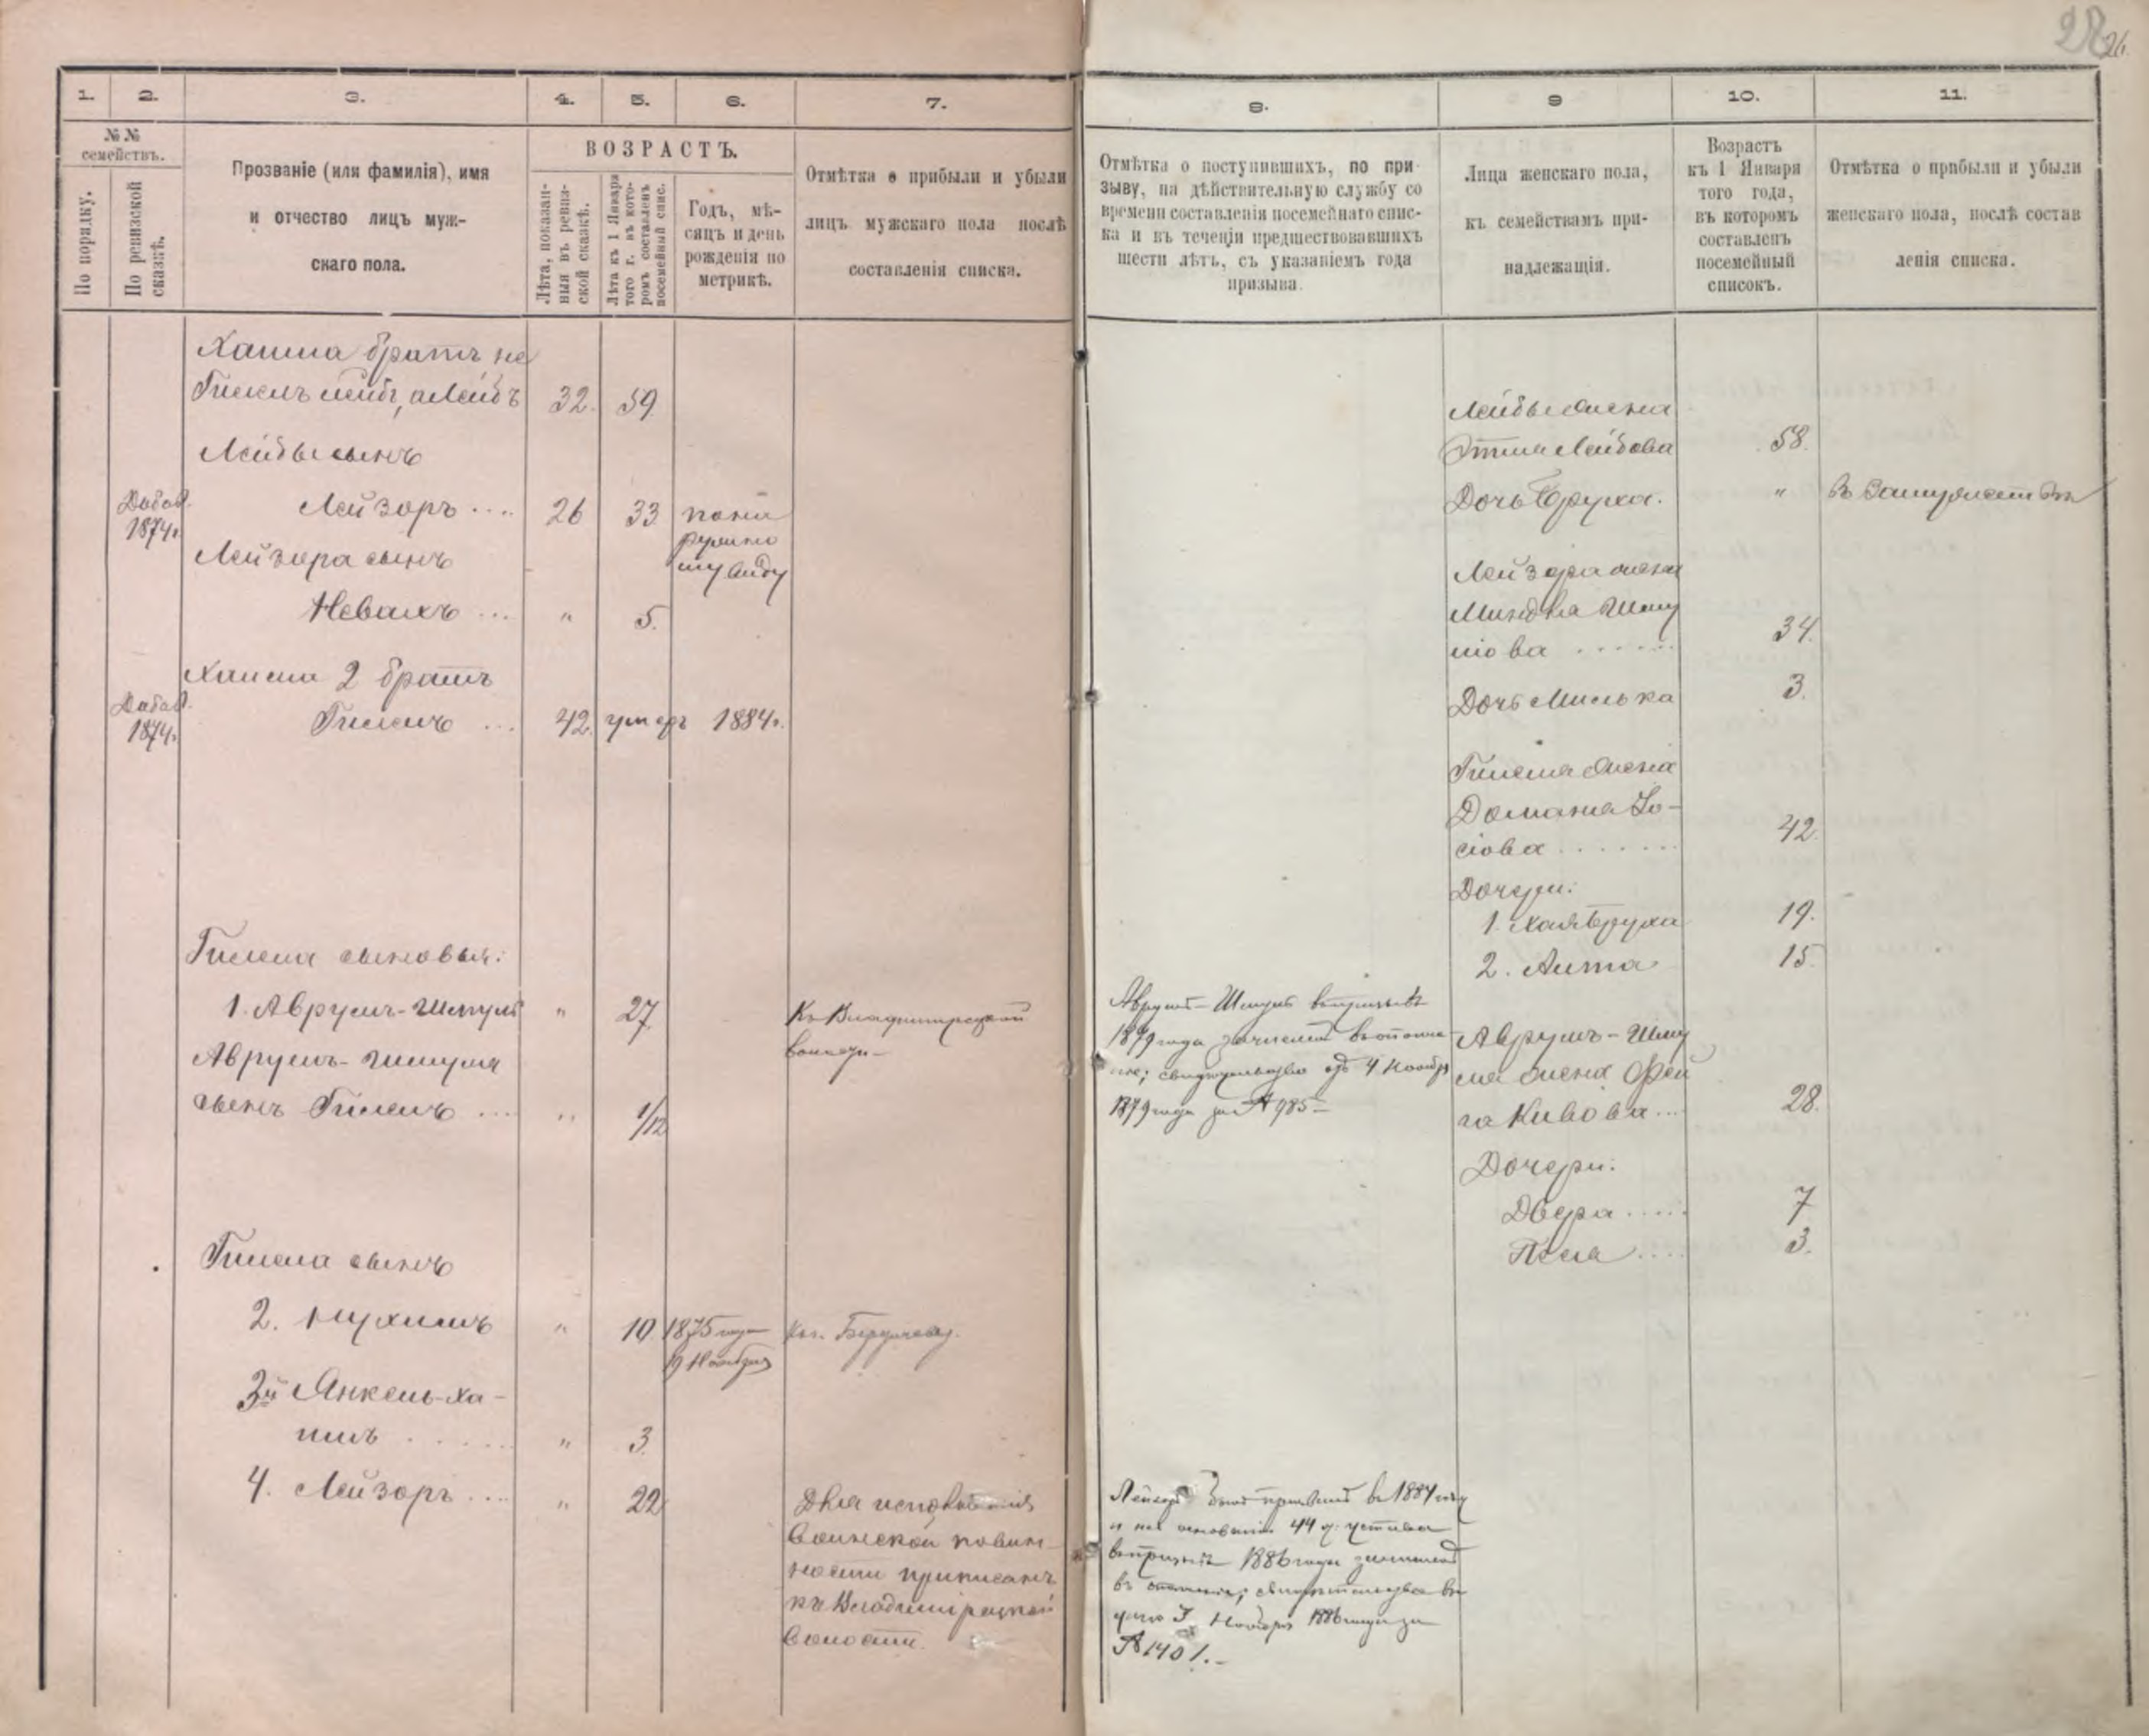 28
26.
1.
2.
3.
4.
5.
6.
7.
№ №
семействъ.
По порядку.
По ревизской
сказкѣ.
Прозваніе (или фамилія), имя
и отчество лицъ муж-
скаго пола.
ВОЗРАСТЪ.
Лѣта, показан-
ныя въ ревиз-
ской сказкѣ.
Лѣта къ 1 Января
того г. въ кото-
ромъ составленъ
посемейный спис.
Годъ, мѣ-
сяцъ и день
рожденія по
метрикѣ.
Отмѣтка о прибыли и убыли
лицъ мужскаго пола послѣ
составленія списка.
Хаима братъ не
Гилель лейбъ, а Лейбъ 32. 59
Лейбы сынъ
Добав. Лейзоръ .... 26 33 по на
1874 г. ружно
му виду
Лейзора сынъ
Невахъ ... " 5.
Хаима 2 братъ
Добав. Гилель ... 42. умеръ 1884 г.
1874 г.
Гилела сыновья:
1. Аврумъ-Шмуль " 27 Къ Владимірецкой
волости
Аврумъ-Шмуля
сынъ Гилель .... " 1/12
Гилела сынъ
2. Нухимъ " 10 1875 года
19 Ноября
3й Янкель-Ха-
имъ ...... " 3.
4. Лейзоръ .... " 22 Для исполненія
воинской повин-
ности приписанъ
къ Владимірецкой
волости.
8.
9
10.
11.
Отмѣтка о поступившихъ, по при-
зыву, на дѣйствительную службу со
времени составленія посемейнаго спис-
ка и въ теченіи предшествовавшихъ
шести лѣтъ, съ указаніемъ года
призыва.
Лица женскаго пола,
къ семействамъ при-
надлежащія.
Возрастъ
къ 1 Января
того года,
въ которомъ
составленъ
посемейный
списокъ.
Отмѣтка о прибыли и убыли
женскаго пола, послѣ состав
ленія списка.
Лейбы жена
Этля Лейбова 58.
Дочь Бруха. " въ замужествѣ
Лейзора жена
Миндля Шму
лова ...... 34.
Дочь Милька 3.
Гилела жена
Домана Іо-
сіова ....... 42.
Дочери:
1. Хая Бруха 19.
2. Лита 15.
Аврумъ-Шмуль въ призывѣ
1879 года зачисленъ въ ополче-
ніе; свидѣтельство отъ 4 Ноября
1879 года за № 985
Аврумъ-Шму
ля жена Фей
га Кивова ... 28.
Дочери:
Двера ..... 7
Песа .... 3.
Лейзоръ былъ призванъ въ 1884 году
и на основаніи 44 ст. устава
въ призывѣ 1886 года зачисленъ
въ ополченіе; свидѣтельство
3 Ноября 1886 года за
№ 1401.